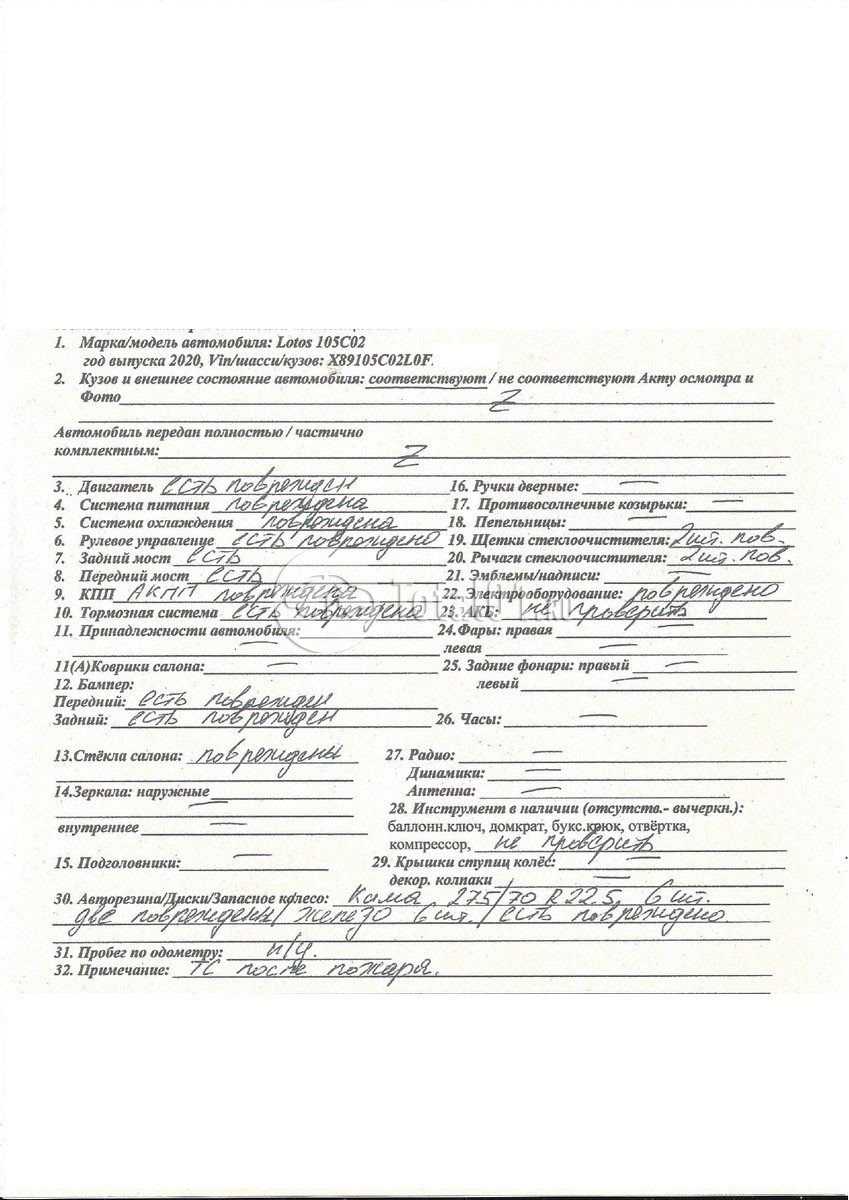 1. Марка/модель автомобиля: Lotos 105C02
год выпуска 2020, Vin/шасси/кузов: X89105C02L0F.
2. Кузов и внешнее состояние автомобиля: соответствуют / не соответствуют Акту осмотра и
Фото Z
Автомобиль передан полностью / частично
комплектным: Z
3. Двигатель есть поврежден
4. Система питания повреждена
5. Система охлаждения повреждена
6. Рулевое управление есть повреждено
7. Задний мост есть
8. Передний мост есть
9. КПП АКПП повреждена
10. Тормозная система есть повреждена
11. Принадлежности автомобиля: —
11(А)Коврики салона: —
12. Бампер:
Передний: есть поврежден
Задний: есть поврежден
13.Стёкла салона: повреждены
14.Зеркала: наружные —
внутреннее —
15. Подголовники: —
16. Ручки дверные: —
17. Противосолнечные козырьки: —
18. Пепельницы: —
19. Щетки стеклоочистителя: 2шт. пов.
20. Рычаги стеклоочистителя: 2шт. пов.
21. Эмблемы/надписи: —
22. Электрооборудование: повреждено
23. АКБ: не проверить
24.Фары: правая —
левая —
25. Задние фонари: правый —
левый —
26. Часы: —
27. Радио: —
Динамики: —
Антенна: —
28. Инструмент в наличии (отсутств.- вычеркн.):
баллонн.ключ, домкрат, букс.крюк, отвёртка,
компрессор, не проверить
29. Крышки ступиц колёс: —
декор. колпаки —
30. Авторезина/Диски/Запасное колесо: Кама 275/70 R22.5 6 шт.
две повреждены/ железо 6 шт./ есть повреждено
31. Пробег по одометру: н/у.
32. Примечание: ТС после пожара.
Total01.ru